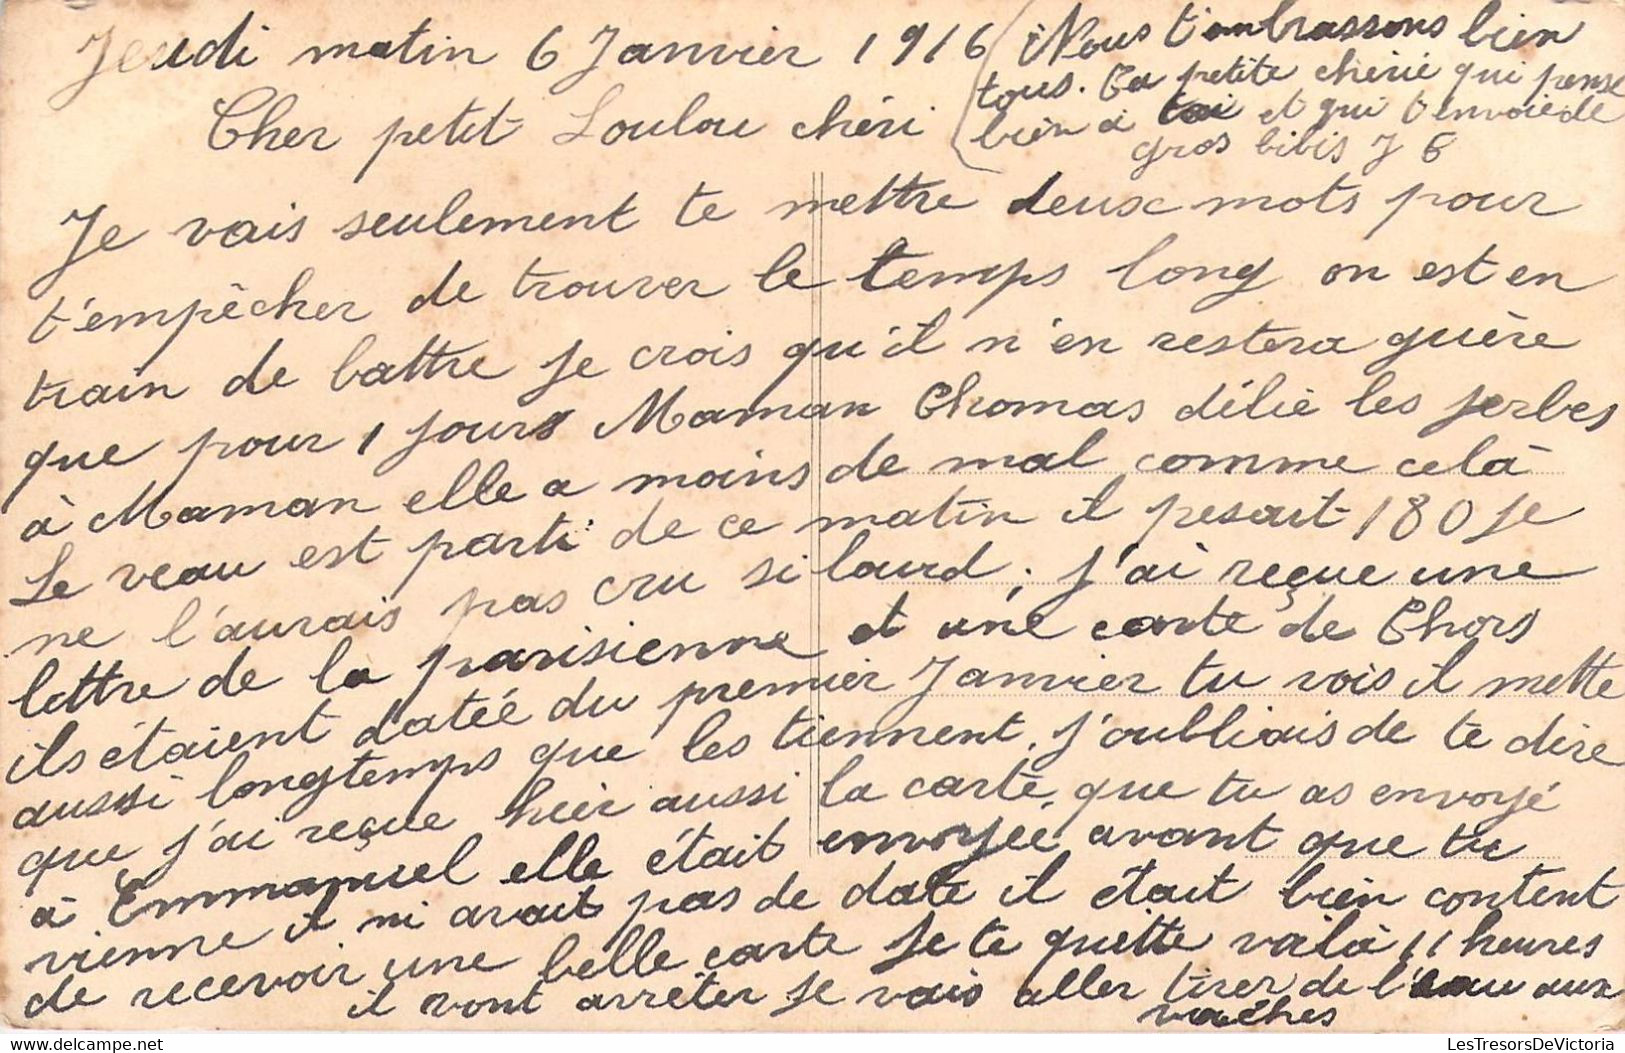 Jeudi matin 6 Janvier 1916
Cher petit Loulou chéri
Je vais seulement te mettre deux mots pour
t'empêcher de trouver le temps long on est en
train de battre je crois qu'il n'en restera guère
que pour 1 jours Maman Thomas délie les jerbes
à Maman elle a moins de mal comme celà
Le veau est parti de ce matin il pesait 180 je
ne l'aurais pas cru si lourd. j'ai reçue une
lettre de la parisienne et une carte de Thors
ils étaient datée du premier Janvier tu vois il mette
aussi longtemps que les tiennent. j'oubliais de te dire
que j'ai reçue hier aussi la carte que tu as envoyé
à Emmanuel elle était envoyée avant que tu
vienne il ni avait pas de date il était bien content
de recevoir une belle carte je te quitte voilà 11 heures
il vont arrêter je vais aller tirer de l'eau aux
vaches
Nous t'embrassons bien
tous. Ta petite chérie qui pense
bien à toi et qui t'envoie de
gros bibis J T
LesTresorsDeVictoria
delcampe.net